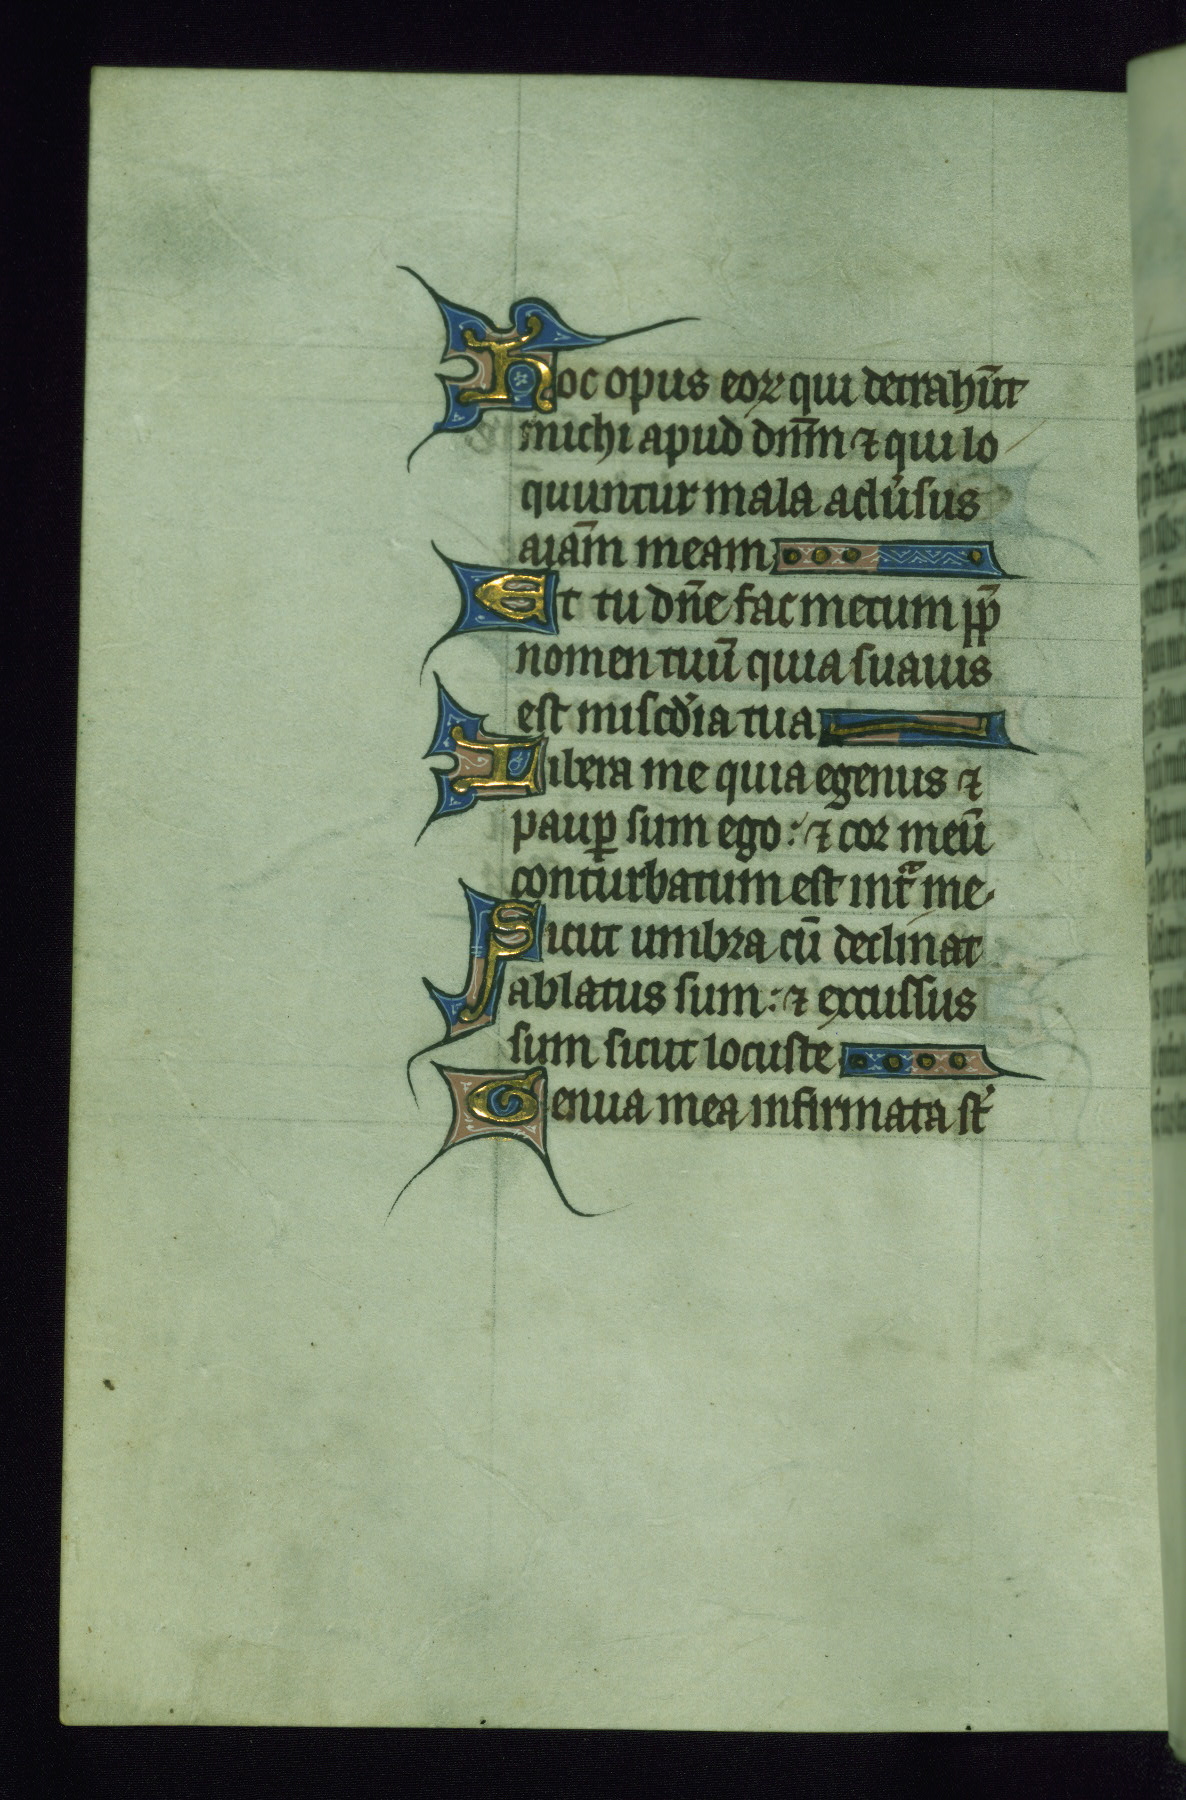 Hoc opus eoꝝ qui detrahūt
michi apud dn̄m ⁊ qui lo
quuntur mala adu̓sus
aīam meam
Et tu dn̄e fac mecum ꝓpt̄
nomen tuū quia suauis
est misc̓dia tua
Libera me quia egenus ⁊
paup̱ sum ego: ⁊ cor meū
conturbatum est int̃ me.
Sicut umbra cū declinat
ablatus sum: ⁊ excussus
sum sicut locuste
Genua mea infirmata st̓